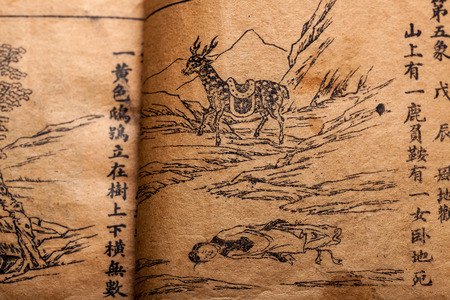 第五象 戊辰 風地觀
山上有一鹿負鞍有一女卧地死
一黃色立在樹上下橫無數